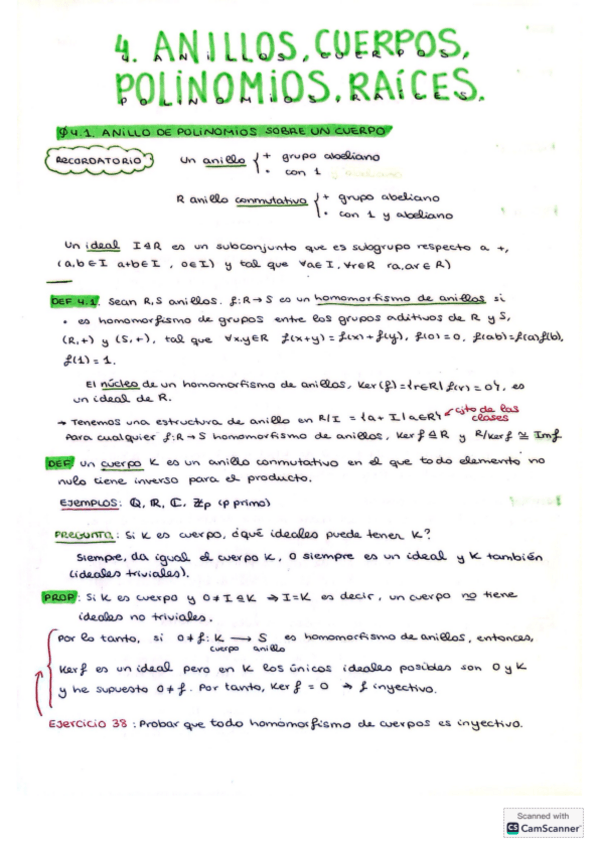 4. ANILLOS, CUERPOS,
POLINOMIOS, RAÍCES.
§4.1. ANILLO DE POLINOMIOS SOBRE UN CUERPO
RECORDATORIO Un anillo { + grupo abeliano
· con 1
R anillo conmutativo { + grupo abeliano
· con 1 y abeliano
Un ideal I⊴R es un subconjunto que es subgrupo respecto a +,
(a,b∈I a+b∈I, 0∈I) y tal que ∀a∈I, ∀r∈R ra,ar∈R)
DEF 4.1. Sean R,S anillos. f:R→S es un homomorfismo de anillos si
· es homomorfismo de grupos entre los grupos aditivos de R y S,
(R,+) y (S,+), tal que ∀x,y∈R f(x+y)=f(x)+f(y), f(0)=0, f(ab)=f(a)f(b),
f(1)=1.
El núcleo de un homomorfismo de anillos, Ker(f)={r∈R| f(r)=0}, es
un ideal de R.
→ Tenemos una estructura de anillo en R/I = {a+I|a∈R} ← cjto de las clases
Para cualquier f:R→S homomorfismo de anillos, Ker f ⊴ R y R/Ker f ≅ Im f
DEF un cuerpo K es un anillo conmutativo en el que todo elemento no
nulo tiene inverso para el producto.
EJEMPLOS: Q, R, C, Zp (p primo)
PREGUNTA: Si K es cuerpo, ¿qué ideales puede tener K?
Siempre, da igual el cuerpo K, 0 siempre es un ideal y K también
(ideales triviales).
PROP: Si K es cuerpo y 0≠I⊴K ⇒ I=K es decir, un cuerpo no tiene
ideales no triviales.
Por lo tanto, si 0≠f: K → S es homomorfismo de anillos, entonces,
cuerpo anillo
Ker f es un ideal pero en K los únicos ideales posibles son 0 y K
y he supuesto 0≠f. Por tanto, Ker f = 0 → f inyectivo.
Ejercicio 38: Probar que todo homomorfismo de cuerpos es inyectivo.
Scanned with
CS CamScanner